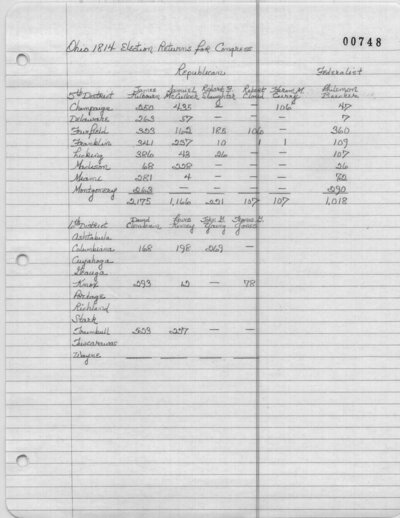 00748
Ohio 1814 Election Returns for Congress
Republican Federalist
James Samuel Robert F. Robert Hiram M. Philemon
5th District Kilbourn McCulloch Slaughter Curry Beecher
Champaign 250 435 2 — 106 47
Delaware 263 37 — — — 7
Fairfield 353 162 180 106 — 360
Franklin 341 257 10 1 1 109
Licking 386 43 26 — — 107
Madison 68 228 — — — 26
Miami 281 4 — — —
Montgomery 263 — — — — 290
2,175 1,166 221 107 107 1,018
David Lewis John G. Thomas G.
6th District Clendenin Kinney Young Jones
Ashtabula
Columbiana 168 198 269 —
Cuyahoga
Geauga
Knox 293 12 — 78
Portage
Richland
Stark
Trumbull 553 227 — —
Tuscarawas
Wayne